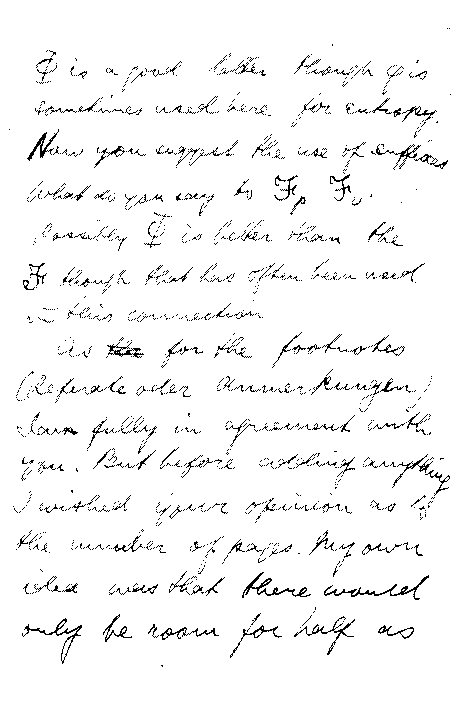 Φ is a good letter though φ is
sometimes used here for entropy.
Now you suggest the use of suffixes
What do you say to ℱp ℱv.
Possibly Φ is better than the
ℱ though that has often been used
in this connection
As for the footnotes
(Referate oder Anmerkungen)
I am fully in agreement with
you. But before adding anything
I wished your opinion as to
the number of pages. My own
idea was that there would
only be room for half as